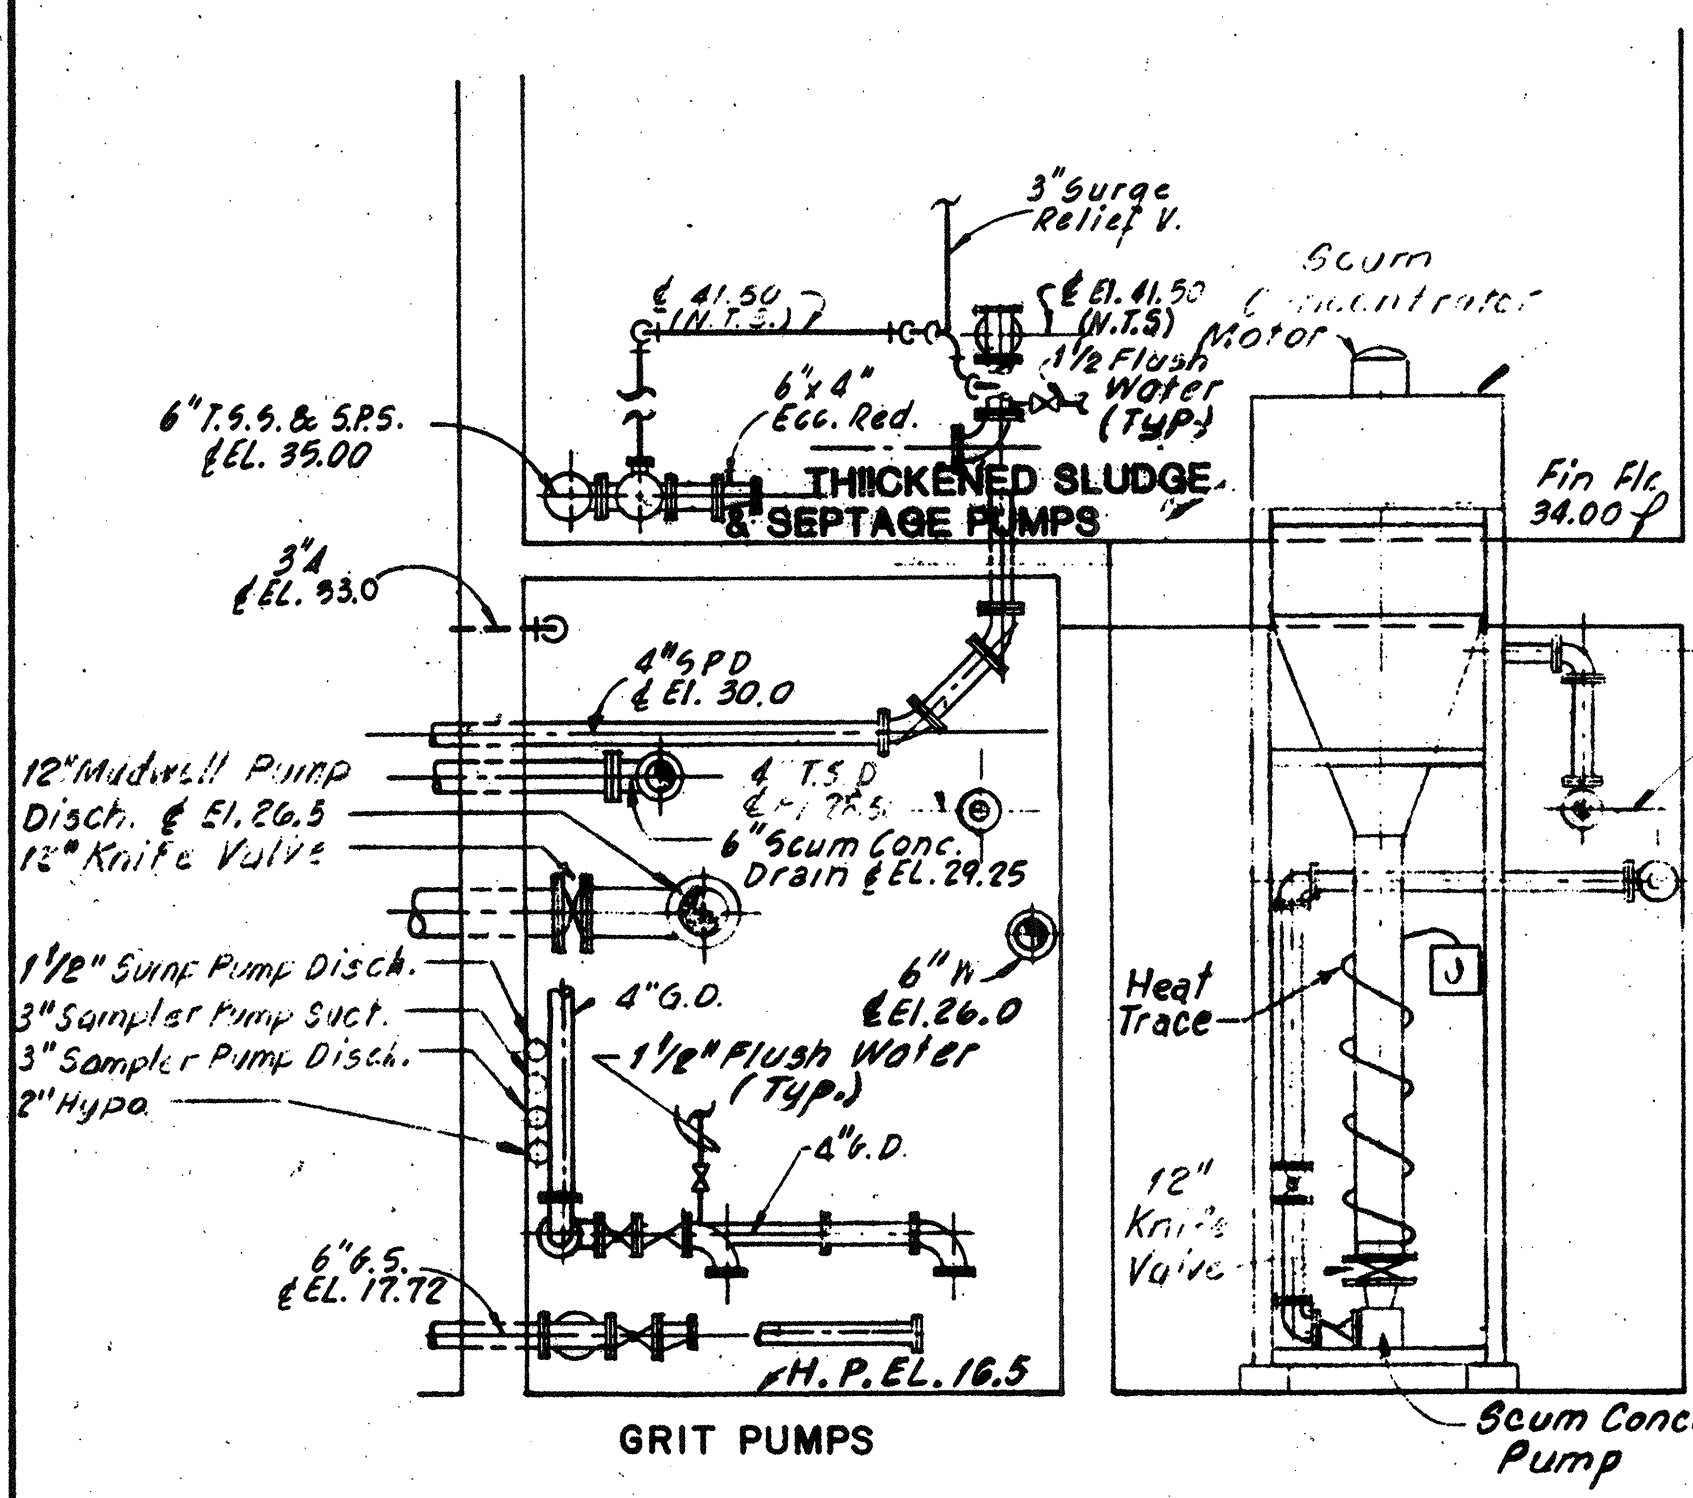 3" Surge
Relief V.
Scum
Concentrator
Motor
℄ 41.50
(N.T.S.)
℄ El. 41.50
(N.T.S)
1 1/2 Flush
Water
(TYP.)
6"x 4"
Ecc. Red.
6" T.S.S. & S.P.S.
℄ EL. 35.00
THICKENED SLUDGE
& SEPTAGE PUMPS
Fin Flr.
34.00
3"A
℄ EL. 33.0
4" SPD
℄ El. 30.0
12" Mudwell Pump
Disch. ℄ El. 26.5
12" Knife Valve
4" T.S.D
℄ El 28.5
6" Scum Conc.
Drain ℄ EL. 29.25
1 1/2" Sump Pump Disch.
3" Sampler Pump Suct.
3" Sampler Pump Disch.
2" Hypo.
4" G.D.
6" W
℄ El. 26.0
1 1/2" Flush Water
(Typ.)
4" G.D.
Heat
Trace
J
12"
Knife
Valve
6" G.S.
℄ EL. 17.72
H. P. EL. 16.5
GRIT PUMPS
Scum Conc
Pump